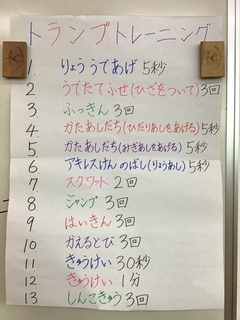 トランプトレーニング
1 りょううであげ 5秒
2 うでたてふせ(ひざをついて)3回
3 ふっきん 3回
4 かたあしだち(ひだりあしをあげる)5秒
5 かたあしだち(みぎあしをあげる)5秒
6 アキレスけんのばし(りょうあし)5秒
7 スクワット 2回
8 ジャンプ 3回
9 はいきん 3回
10 かえるとび 3回
11 きゅうけい 30秒
12 きゅうけい 1分
13 しんこきゅう 3回